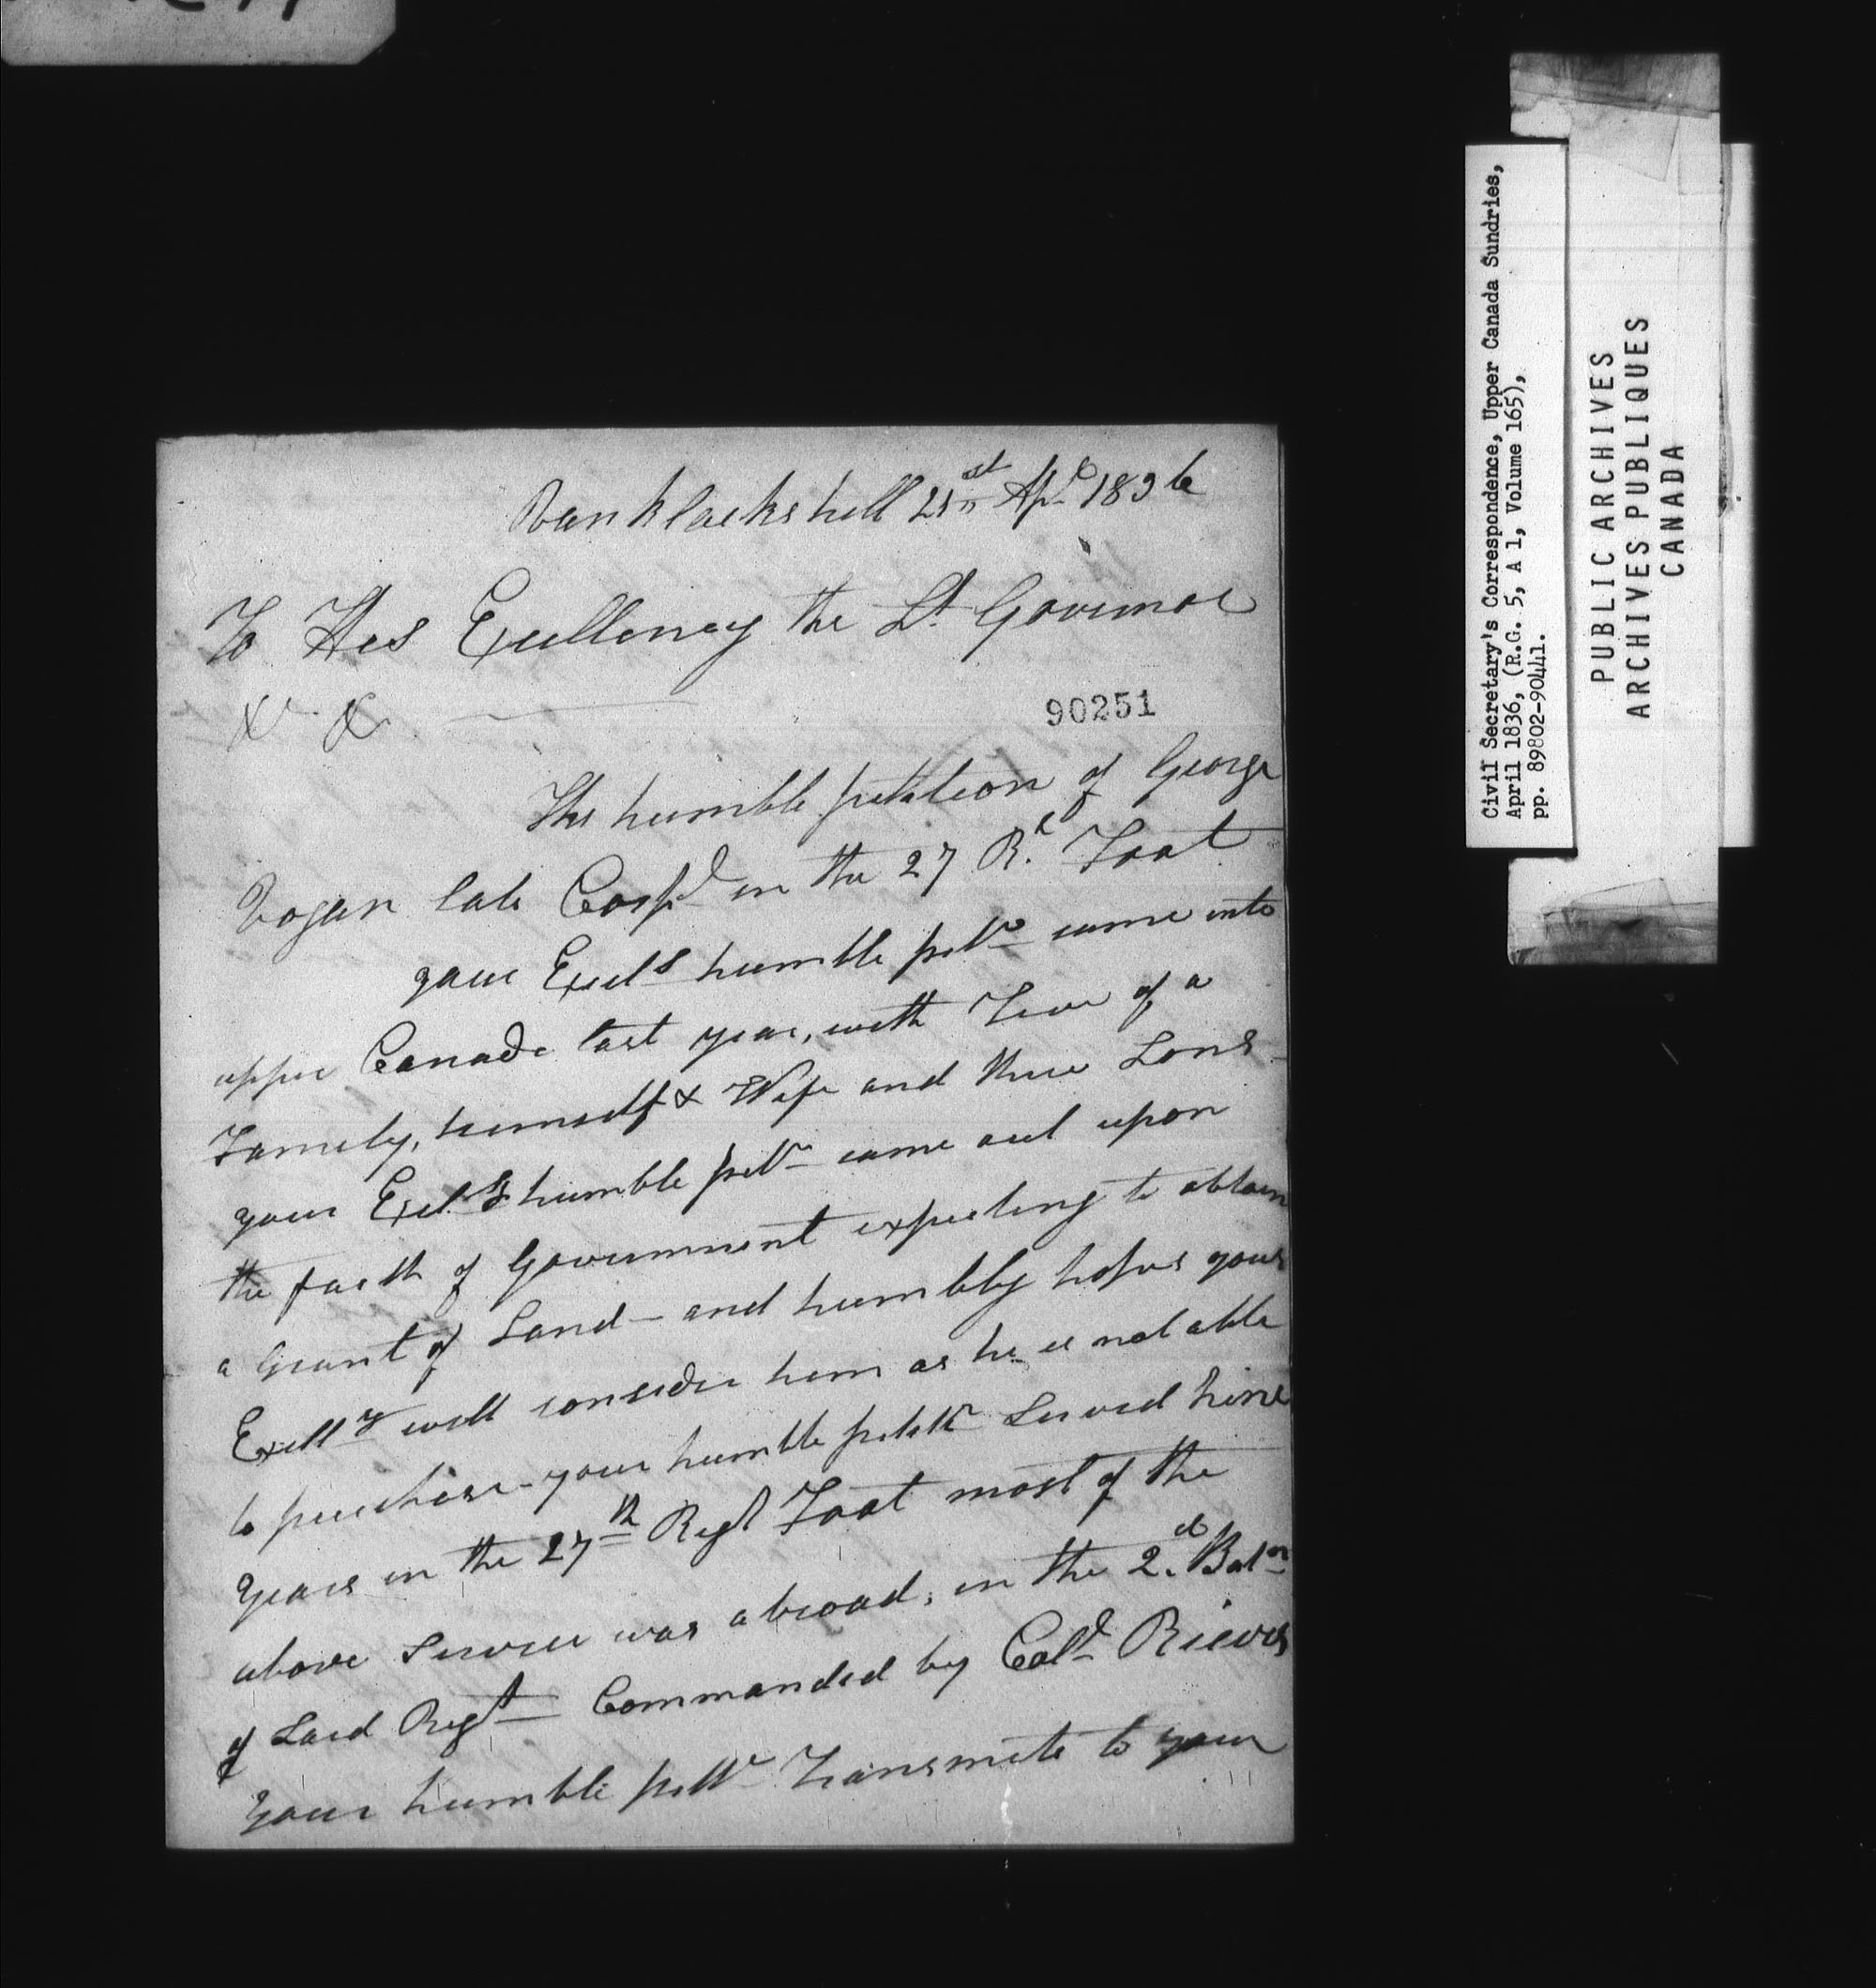 Vanklackshill 21st Apl 1836
To His Excellency the Lt Governor
& &
90251
The humble petition of George
Vogan late Corpl in the 27 Rt Foot
your Excels humble pettr came into
upper Canada last year, with Five of a
Family, himself & Wife and three Sons
your Excels humble pettr came out upon
the faith of Government expecting to obtain
a Grant of Land - and humbly hopes your
Excelly will consider him as he is not able
to purchase - your humble petitr Served nine
years in the 27th Regt Foot most of the
above Service was abroad, in the 2d Batn
of Said Regt Commanded by Coll Rieves
your humble pettr Transmits to your
Civil Secretary's Correspondence, Upper Canada Sundries,
April 1836, (R.G. 5, A 1, Volume 165),
pp. 89802-90441.
PUBLIC ARCHIVES
ARCHIVES PUBLIQUES
CANADA